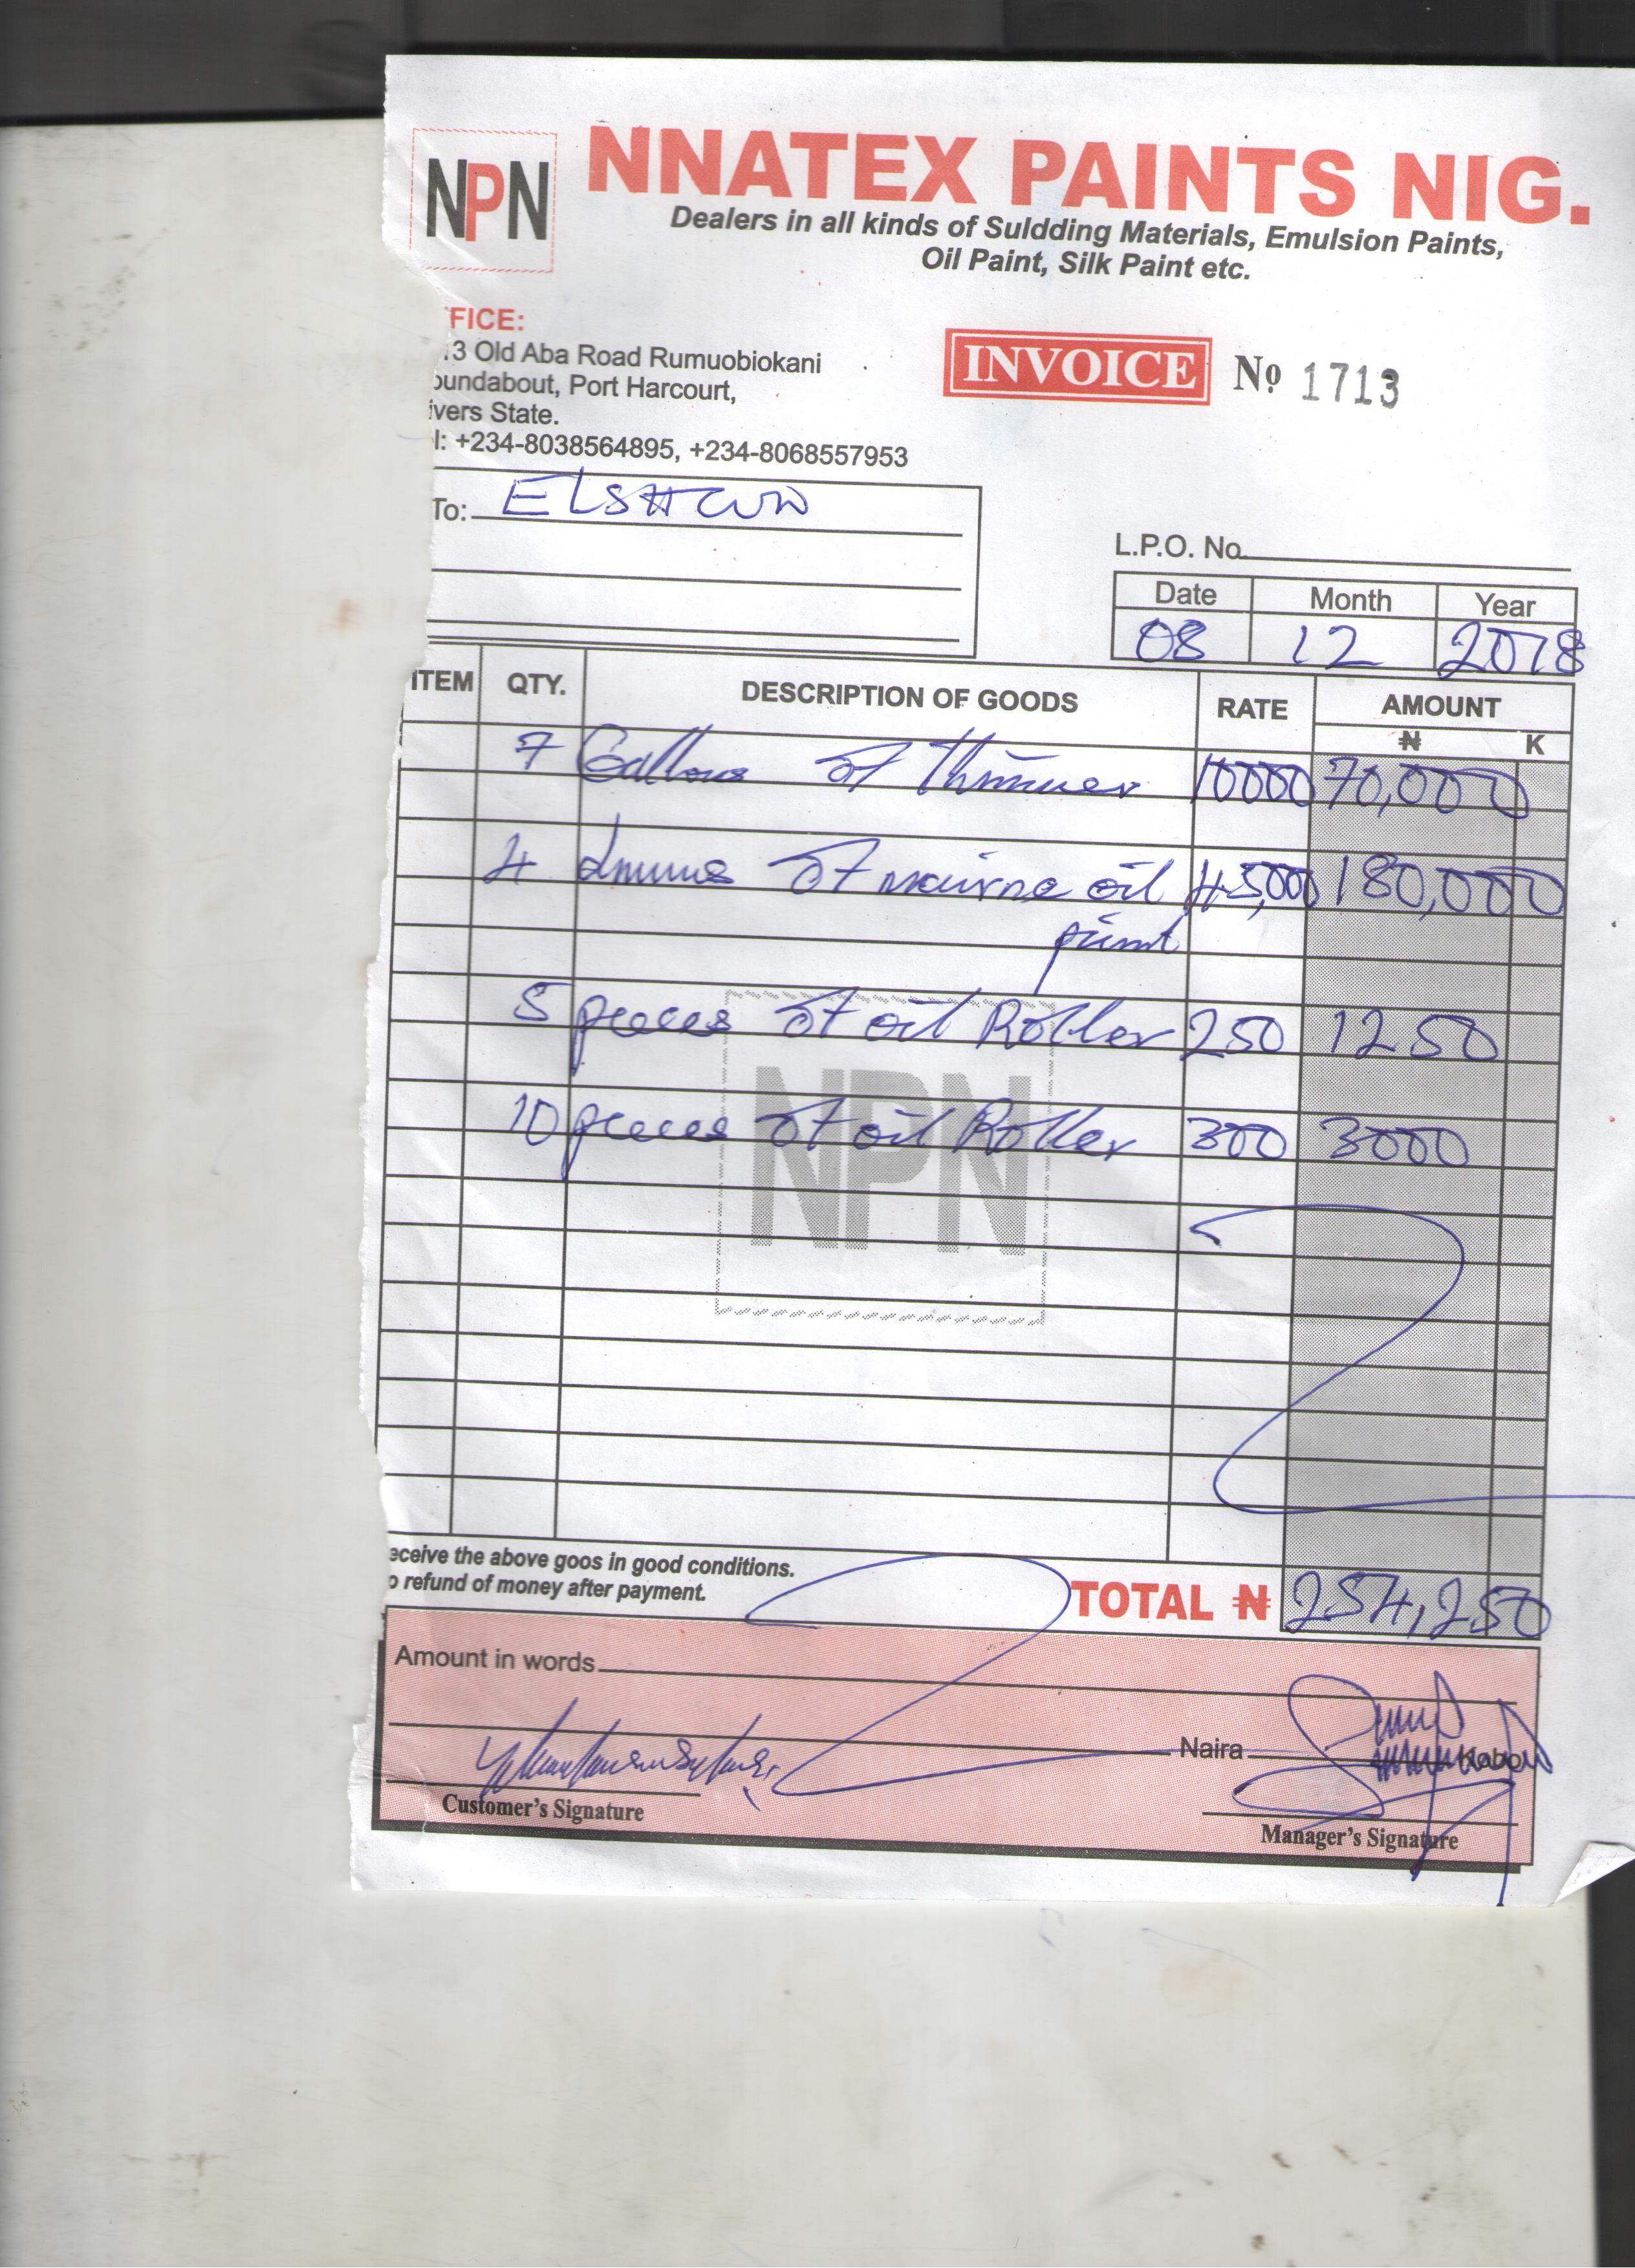 NPN
NNATEX PAINTS NIG.
Dealers in all kinds of Suldding Materials, Emulsion Paints,
Oil Paint, Silk Paint etc.
FICE:
13 Old Aba Road Rumuobiokani
oundabout, Port Harcourt,
ivers State.
l: +234-8038564895, +234-8068557953
INVOICE No 1713
To: ELSHCON
L.P.O. No.
Date Month Year
08 12 2018
ITEM QTY. DESCRIPTION OF GOODS RATE AMOUNT
₦ K
7 Gallons of thinner 10000 70,000
4 drums of marine oil 45,000 180,000
paint
5 pieces of oil Roller 250 1250
10 pieces of oil Roller 300 3000
NPN
eceive the above goos in good conditions.
o refund of money after payment.
TOTAL ₦ 254,250
Amount in words
Naira Kobo
Customer's Signature
Manager's Signature